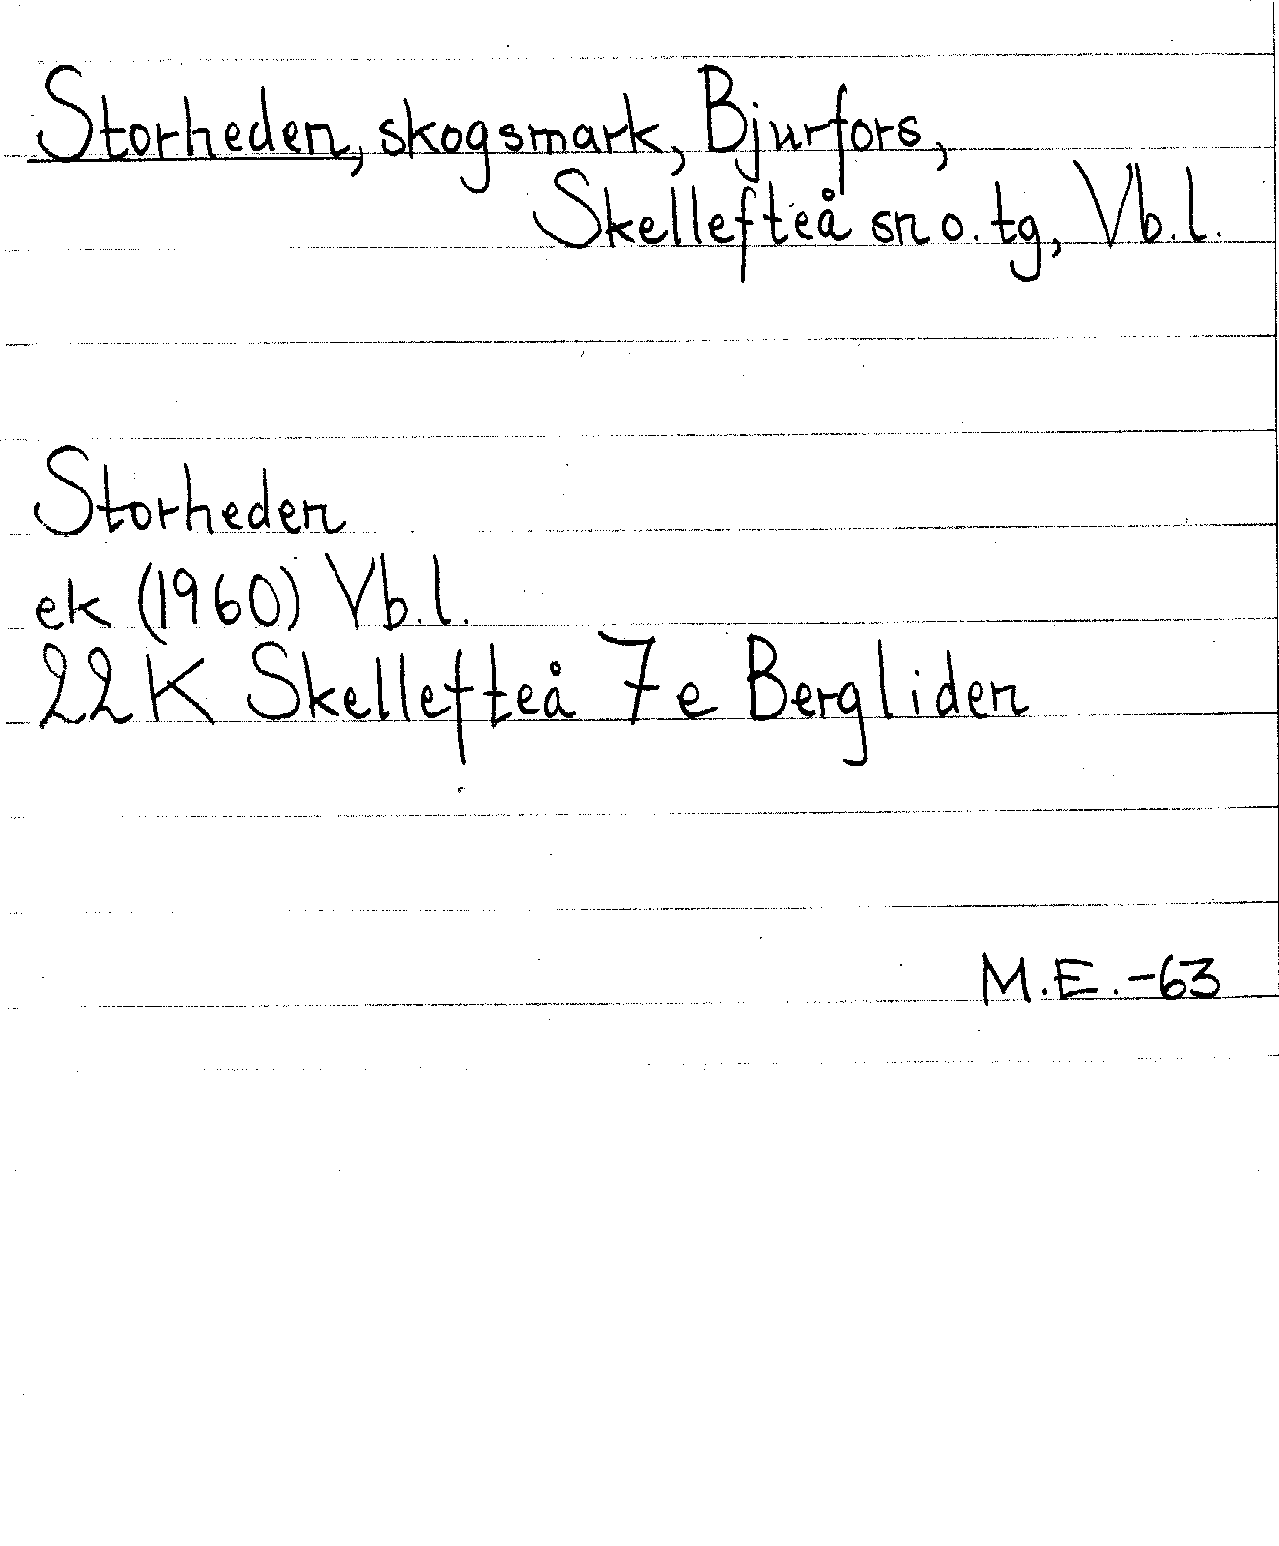 Storheden, skogsmark, Bjurfors,
Skellefteå sn o. tg, Vb.l.
Storheden
ek (1960) Vb.l.
22K Skellefteå 7e Bergliden
M.E.-63